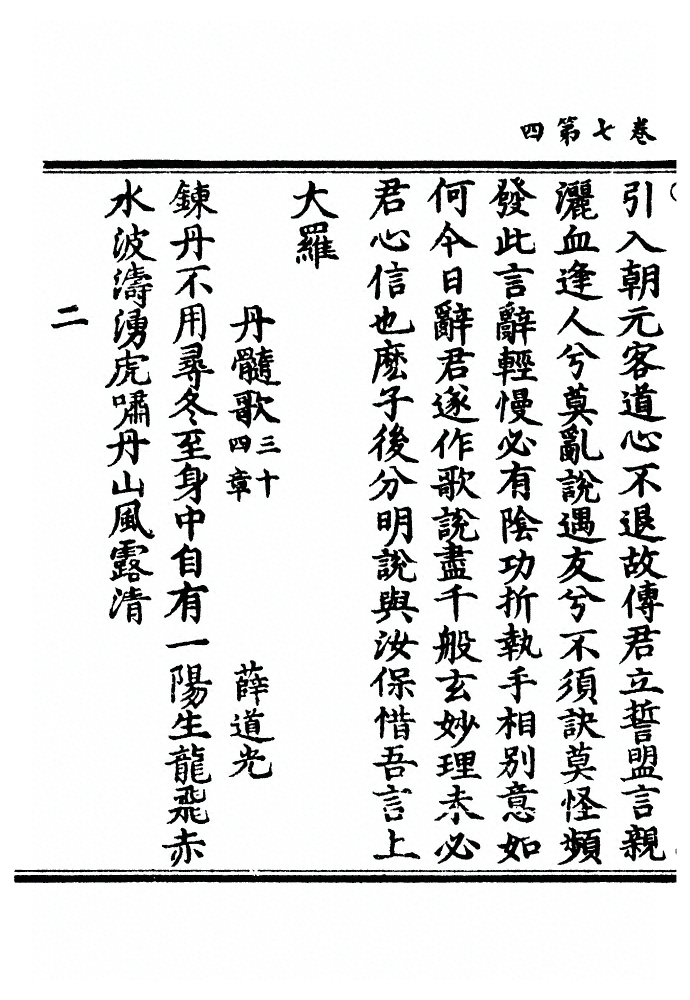 卷七第四
引入朝元客道心不退故傳君立誓盟言親
灑血逢人兮莫亂說遇友兮不須訣莫怪頻
發此言辭輕慢必有陰功折執手相別意如
何今日辭君遂作歌說盡千般玄妙理未必
君心信也麽子後分明說與汝保惜吾言上
大羅
丹髓歌三十四章 薛道光
鍊丹不用尋冬至身中自有一陽生龍飛赤
水波濤湧虎嘯丹山風露清
二